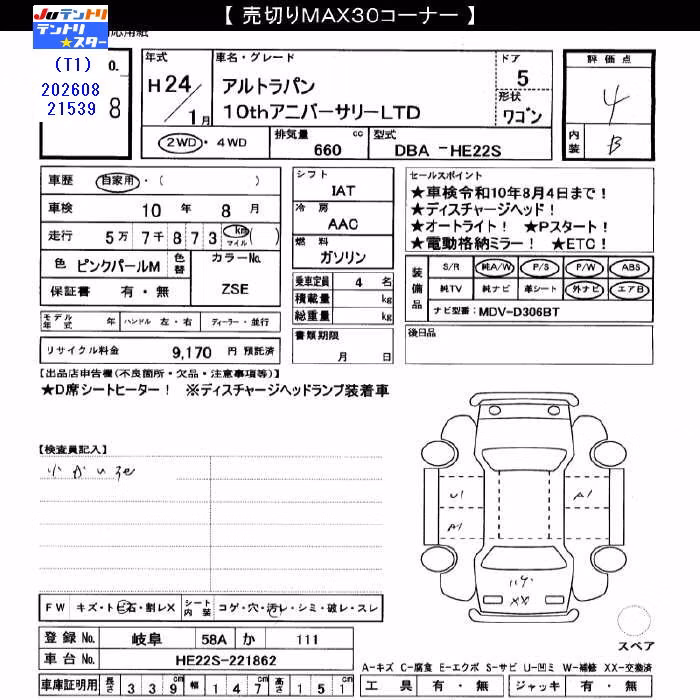 【 売切りMAX30コーナー 】
JUテントリ
テントリ★スター
応用紙
(T1)
202608
21539
o.
8
年式
H24/1月
車名・グレード
アルトラパン
10thアニバーサリーLTD
ドア
5
形状
ワゴン
評価点
4
内装
B
2WD・4WD
排気量 660 cc
型式 DBA -HE22S
車歴 自家用・( )
車検 10年 8月
走行 5万 7千 8 7 3 km マイル ( )
色 ピンクパールM
色替
カラーNo.
ZSE
保証書 有・無
モデル年式 年 ハンドル 左・右 ディーラー・並行
リサイクル料金 9,170 円 預託済
シフト
IAT
冷房
AAC
燃料
ガソリン
乗車定員 4 名
積載量 kg
総重量 kg
書類期限
月 日
セールスポイント
★車検令和10年8月4日まで!
★ディスチャージヘッド!
★オートライト! ★Pスタート!
★電動格納ミラー! ★ETC!
装備品
S/R 純A/W P/S P/W ABS
純TV 純ナビ 革シート 外ナビ エアB
ナビ型番: MDV-D306BT
後日品
【出品店申告欄(不良箇所・欠品・注意事項等)】
★D席シートヒーター! ※ディスチャージヘッドランプ装着車
【検査員記入】
小かいろ
U1
A1
A1
XX
FW キズ・トビ石・割レX シート内装 コゲ・穴・汚レ・シミ・破レ・スレ
登録No. 岐阜 58A か 111
車台No. HE22S-221862
車庫証明用 長さ 339cm 幅 147cm 高さ 151cm
スペア
A-キズ C-腐食 E-エクボ S-サビ U-凹ミ W-補修 XX-交換済
工具 有・無 ジャッキ 有・無